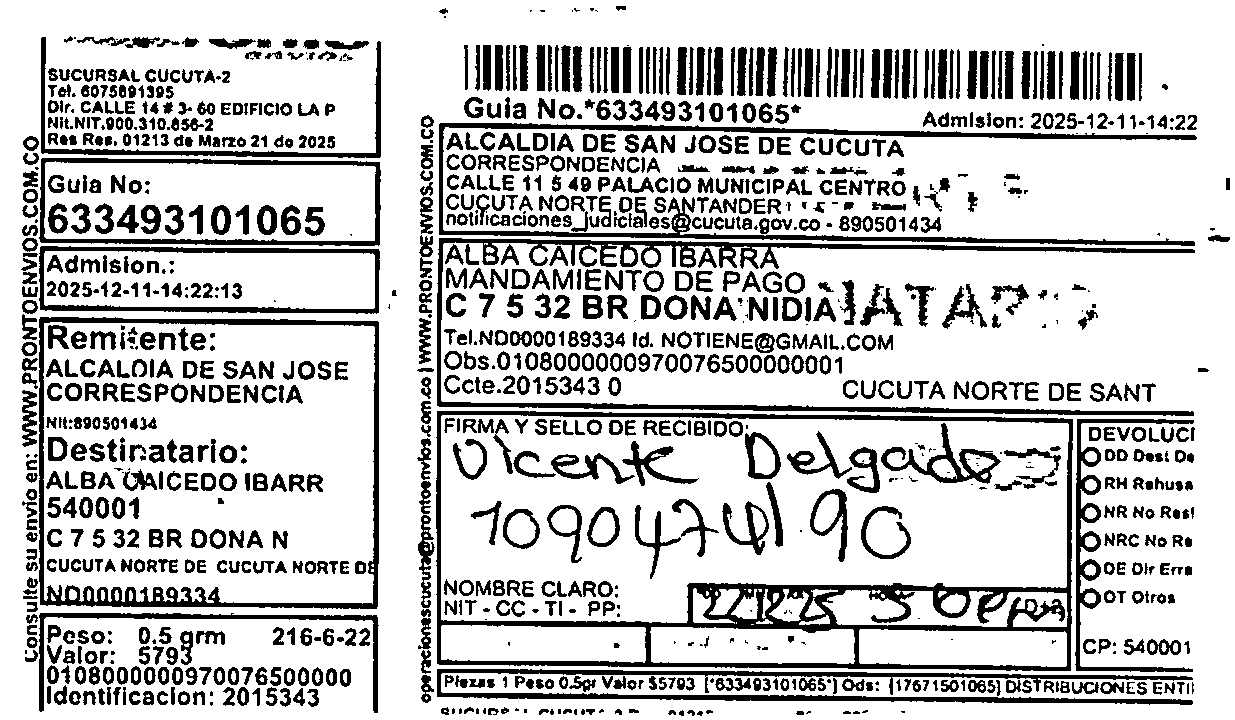 SUCURSAL CUCUTA-2
Tel. 6075891395
Dir. CALLE 14 # 3- 60 EDIFICIO LA P
Nit.NIT.900.310.856-2
Res Res. 01213 de Marzo 21 de 2025
Consulte su envio en: WWW.PRONTOENVIOS.COM.CO
Guia No:
633493101065
Admision.:
2025-12-11-14:22:13
Remitente:
ALCALDIA DE SAN JOSE
CORRESPONDENCIA
Nit:890501434
Destinatario:
ALBA CAICEDO IBARR
540001
C 7 5 32 BR DONA N
CUCUTA NORTE DE CUCUTA NORTE DE
ND0000189334
Peso: 0.5 grm 216-6-22
Valor: 5793
01080000009700765000000
Identificacion: 2015343
Guia No.*633493101065*
Admision: 2025-12-11-14:22
operacionescucuta@prontoenvios.com.co | WWW.PRONTOENVIOS.COM.CO
ALCALDIA DE SAN JOSE DE CUCUTA
CORRESPONDENCIA
CALLE 11 5 49 PALACIO MUNICIPAL CENTRO
CUCUTA NORTE DE SANTANDER
notificaciones_judiciales@cucuta.gov.co - 890501434
ALBA CAICEDO IBARRA
MANDAMIENTO DE PAGO
C 7 5 32 BR DONA NIDIA
Tel.ND0000189334 Id. NOTIENE@GMAIL.COM
Obs.010800000097007650000001
Ccte.2015343 0 CUCUTA NORTE DE SANT
FIRMA Y SELLO DE RECIBIDO:
Vicente Delgado
1090474190
NOMBRE CLARO:
NIT - CC - TI - PP:
DEVOLUCI
DD Dest De
RH Rehusa
NR No Resi
NRC No Re
DE Dir Erra
OT Otros
CP: 540001
Piezas 1 Peso 0.5gr Valor $5793 [*633493101065*] Ods: [17671501065] DISTRIBUCIONES ENTI